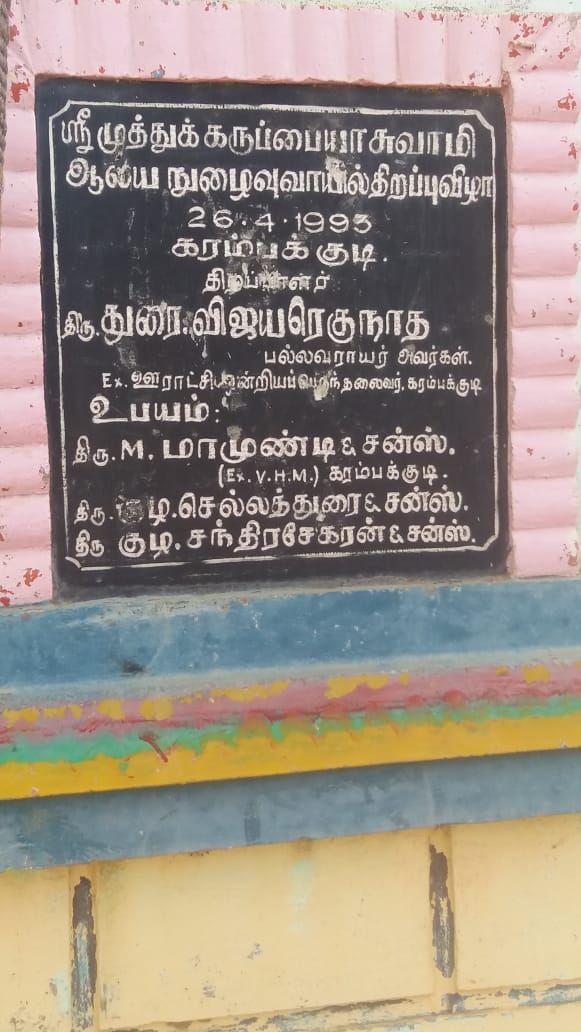 ஸ்ரீ முத்துக்கருப்பையா சுவாமி
ஆலய நுழைவுவாயில் திறப்புவிழா
26.4.1993
கரம்பக்குடி.
திறப்பாளர்
திரு. துரை. விஜயரெகுநாத
பல்லவராயர் அவர்கள்.
Ex. ஊராட்சிஒன்றியப்பெருந்தலைவர், கரம்பக்குடி
உபயம்:
திரு. M. மாமுண்டி & சன்ஸ்.
(Ex. V.H.M.) கரம்பக்குடி.
திரு. குழ. செல்லத்துரை & சன்ஸ்.
திரு குழ. சந்திரசேகரன் & சன்ஸ்.